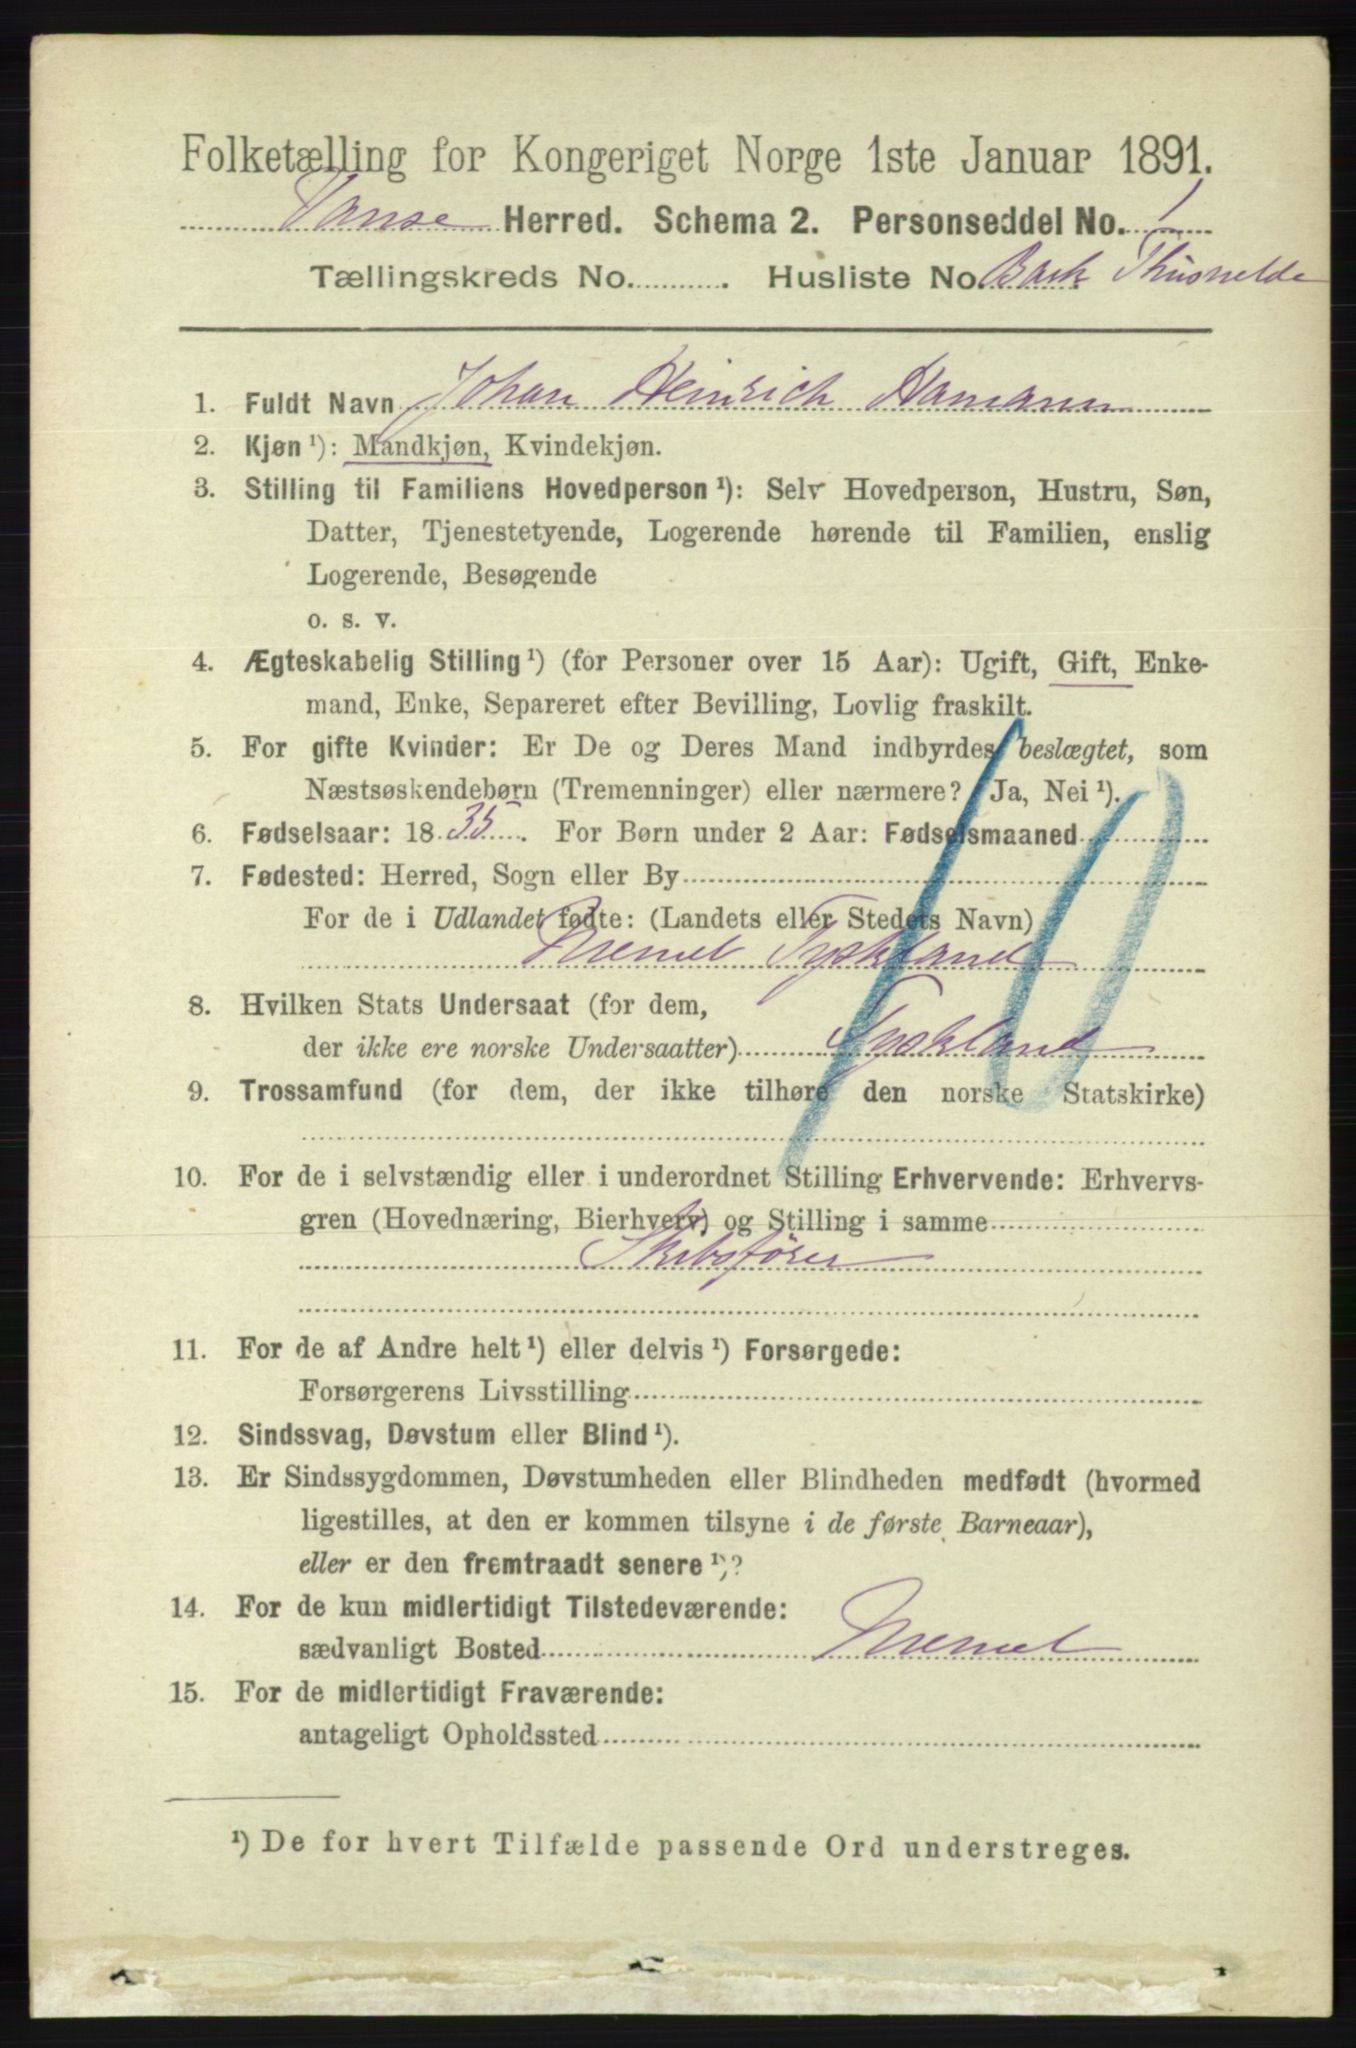 Folketælling for Kongeriget Norge 1ste Januar 1891.
Vanse Herred. Schema 2. Personseddel No. 1
Tællingskreds No. . Husliste No. Bark Thusnelda
1. Fuldt Navn Johan Heinrich Hamann
2. Kjøn ¹): Mandkjøn, Kvindekjøn.
3. Stilling til Familiens Hovedperson ¹): Selv Hovedperson, Hustru, Søn,
Datter, Tjenestetyende, Logerende hørende til Familien, enslig
Logerende, Besøgende
o. s. v.
4. Ægteskabelig Stilling ¹) (for Personer over 15 Aar): Ugift, Gift, Enke-
mand, Enke, Separeret efter Bevilling, Lovlig fraskilt.
5. For gifte Kvinder: Er De og Deres Mand indbyrdes beslægtet, som
Næstsøskendebørn (Tremenninger) eller nærmere? Ja, Nei ¹).
6. Fødselsaar: 18 35. For Børn under 2 Aar: Fødselsmaaned
7. Fødested: Herred, Sogn eller By
For de i Udlandet fødte: (Landets eller Stedets Navn)
Memel Tyskland
8. Hvilken Stats Undersaat (for dem,
der ikke ere norske Undersaatter) Tyskland
9. Trossamfund (for dem, der ikke tilhøre den norske Statskirke)
10. For de i selvstændig eller i underordnet Stilling Erhvervende: Erhvervs-
gren (Hovednæring, Bierhverv) og Stilling i samme
Skibsfører
11. For de af Andre helt ¹) eller delvis ¹) Forsørgede:
Forsørgerens Livsstilling
12. Sindssvag, Døvstum eller Blind ¹).
13. Er Sindssygdommen, Døvstumheden eller Blindheden medfødt (hvormed
ligestilles, at den er kommen tilsyne i de første Barneaar),
eller er den fremtraadt senere ¹)?
14. For de kun midlertidigt Tilstedeværende:
sædvanligt Bosted Memel
15. For de midlertidigt Fraværende:
antageligt Opholdssted
¹) De for hvert Tilfælde passende Ord understreges.
10